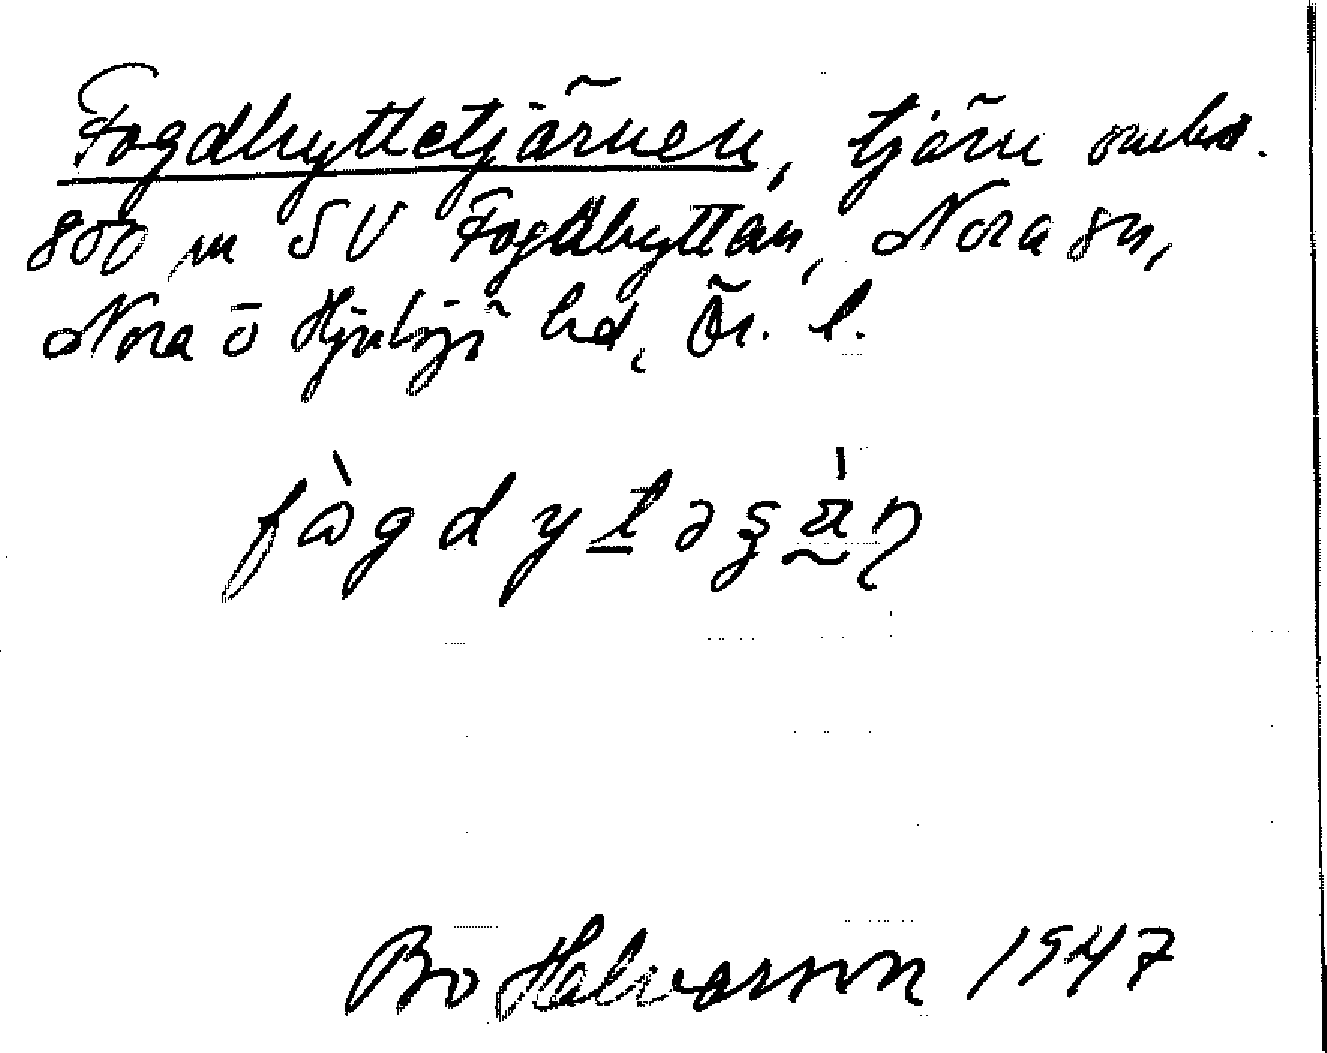 Fogdhyttetjärnen, tjärn omkr.
800 m SV Fogdhyttan, Nora sn,
Nora o Hjulsjö hd, Ör. l.
Bo Halvarson 1947